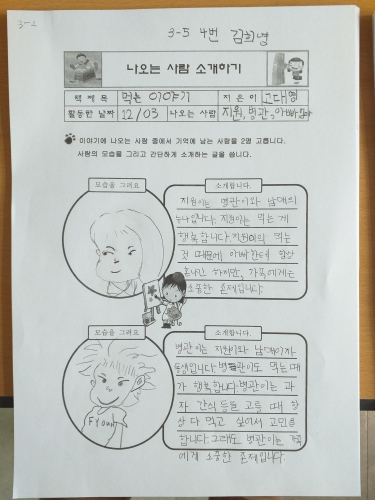 3-2
3-5 4번 김희영
나오는 사람 소개하기
책 제목 먹는 이야기 지은이 고대영
활동한 날짜 12/03 나오는 사람 지원, 병관, 아빠, 엄마
이야기에 나오는 사람 중에서 기억에 남는 사람을 2명 고릅니다.
사람의 모습을 그리고 간단하게 소개하는 글을 씁니다.
모습을 그려요
소개합니다.
지원이는 병관이와 남매의
누나입니다. 지원이는 먹는 게
행복합니다. 지원이의 먹는
것 때문에 아빠한테 항상
혼나만 하지만, 가족에게는
소중한 존재입니다.
모습을 그려요
소개합니다.
병관이는 지원이와 남매이자
동생입니다. 병관이도 먹는 때
가 행복합니다. 병관이는 과
자 간식 등을 고를 때 항
상 다 먹고 싶어서 고민을
합니다. 그래도 병관이는 가족
에게 소중한 존재입니다.